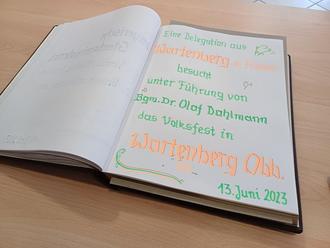 Eine Delegation aus
Wartenberg in Hessen
besucht
unter Führung von
Bgm. Dr. Olaf Dahlmann
das Volksfest in
Wartenberg Obb.
13. Juni 2023